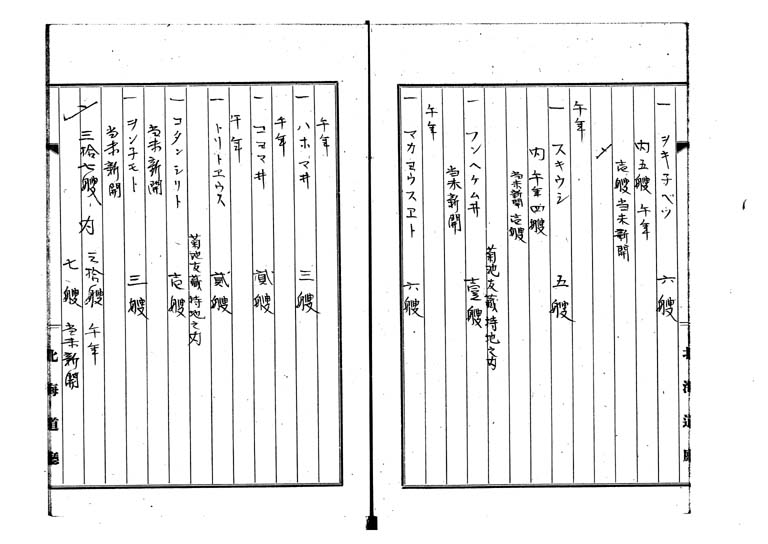 一 ヲキ子ベツ 六艘
内五艘 午年
壱艘 当未新開
一 スキウシ 五艘
午年
内 午年 四艘
当未新開 壱艘
一 フンヘケム井 壹艘
菊池友蔵持地之内
当未新開
一 マカヱウスヱト 六艘
午年
北海道廳
一 ハホマ井 三艘
午年
一 コヱマ井 貮艘
午年
一 トリトヱウス 貮艘
午年
一 コタンシリト 壱艘
菊池友蔵持地之内
当未新開
一 ヲン子モト 三艘
当未新開
〆 三拾七艘 内 三拾艘 午年
七艘 当未新開
北海道廳